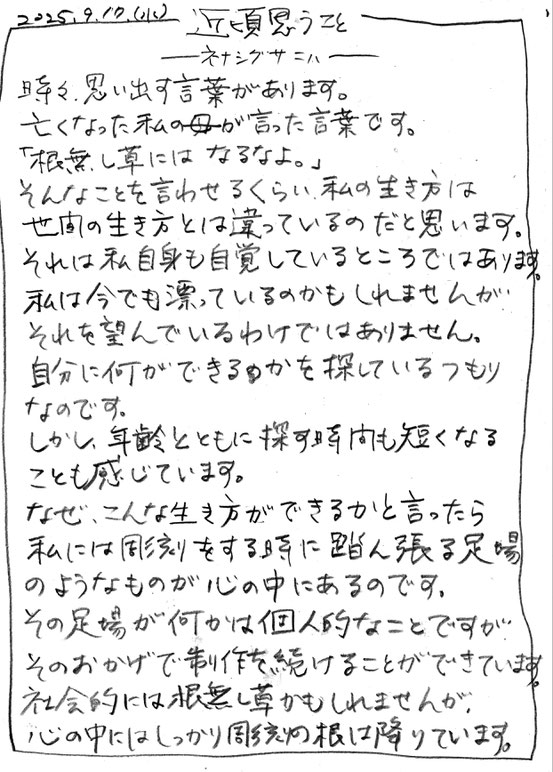 2025.9.17.(水) 近頃思うこと
ーネナシグサニハー
時々、思い出す言葉があります。
亡くなった私の母が言った言葉です。
「根無し草にはなるなよ。」
そんなことを言わせるくらい、私の生き方は
世間の生き方とは違っているのだと思います。
それは私自身も自覚しているところではあります。
私は今でも漂っているのかもしれませんが
それを望んでいるわけではありません。
自分に何ができるのかを探しているつもり
なのです。
しかし、年齢とともに探す時間も短くなる
ことも感じています。
なぜ、こんな生き方ができるかと言ったら
私には彫刻をする時に踏ん張る足場
のようなものが心の中にあるのです。
その足場が何かは個人的なことですが
そのおかげで制作を続けることができています。
社会的には根無し草かもしれませんが、
心の中にはしっかり彫刻の根は降りています。